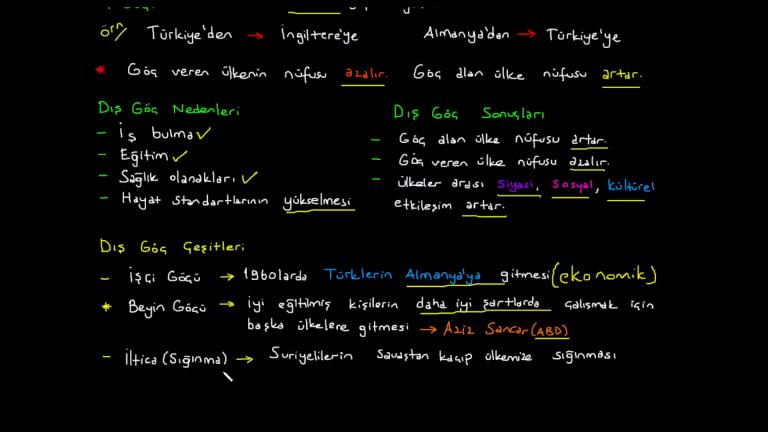 örn/ Türkiye'den → İngiltere'ye Almanya'dan → Türkiye'ye
* Göç veren ülkenin nüfusu azalır. Göç alan ülke nüfusu artar.
Dış Göç Nedenleri
- İş bulma ✓
- Eğitim ✓
- Sağlık olanakları ✓
- Hayat standartlarının yükselmesi
Dış Göç Sonuçları
- Göç alan ülke nüfusu artar.
- Göç veren ülke nüfusu azalır.
- Ülkeler arası siyasi, sosyal, kültürel
etkileşim artar.
Dış Göç Çeşitleri
- İşçi Göçü → 1960larda Türklerin Almanya'ya gitmesi (ekonomik)
* Beyin Göçü → iyi eğitilmiş kişilerin daha iyi şartlarda çalışmak için
başka ülkelere gitmesi → Aziz Sancar (ABD)
- İltica (Sığınma) → Suriyelilerin savaştan kaçıp ülkemize sığınması